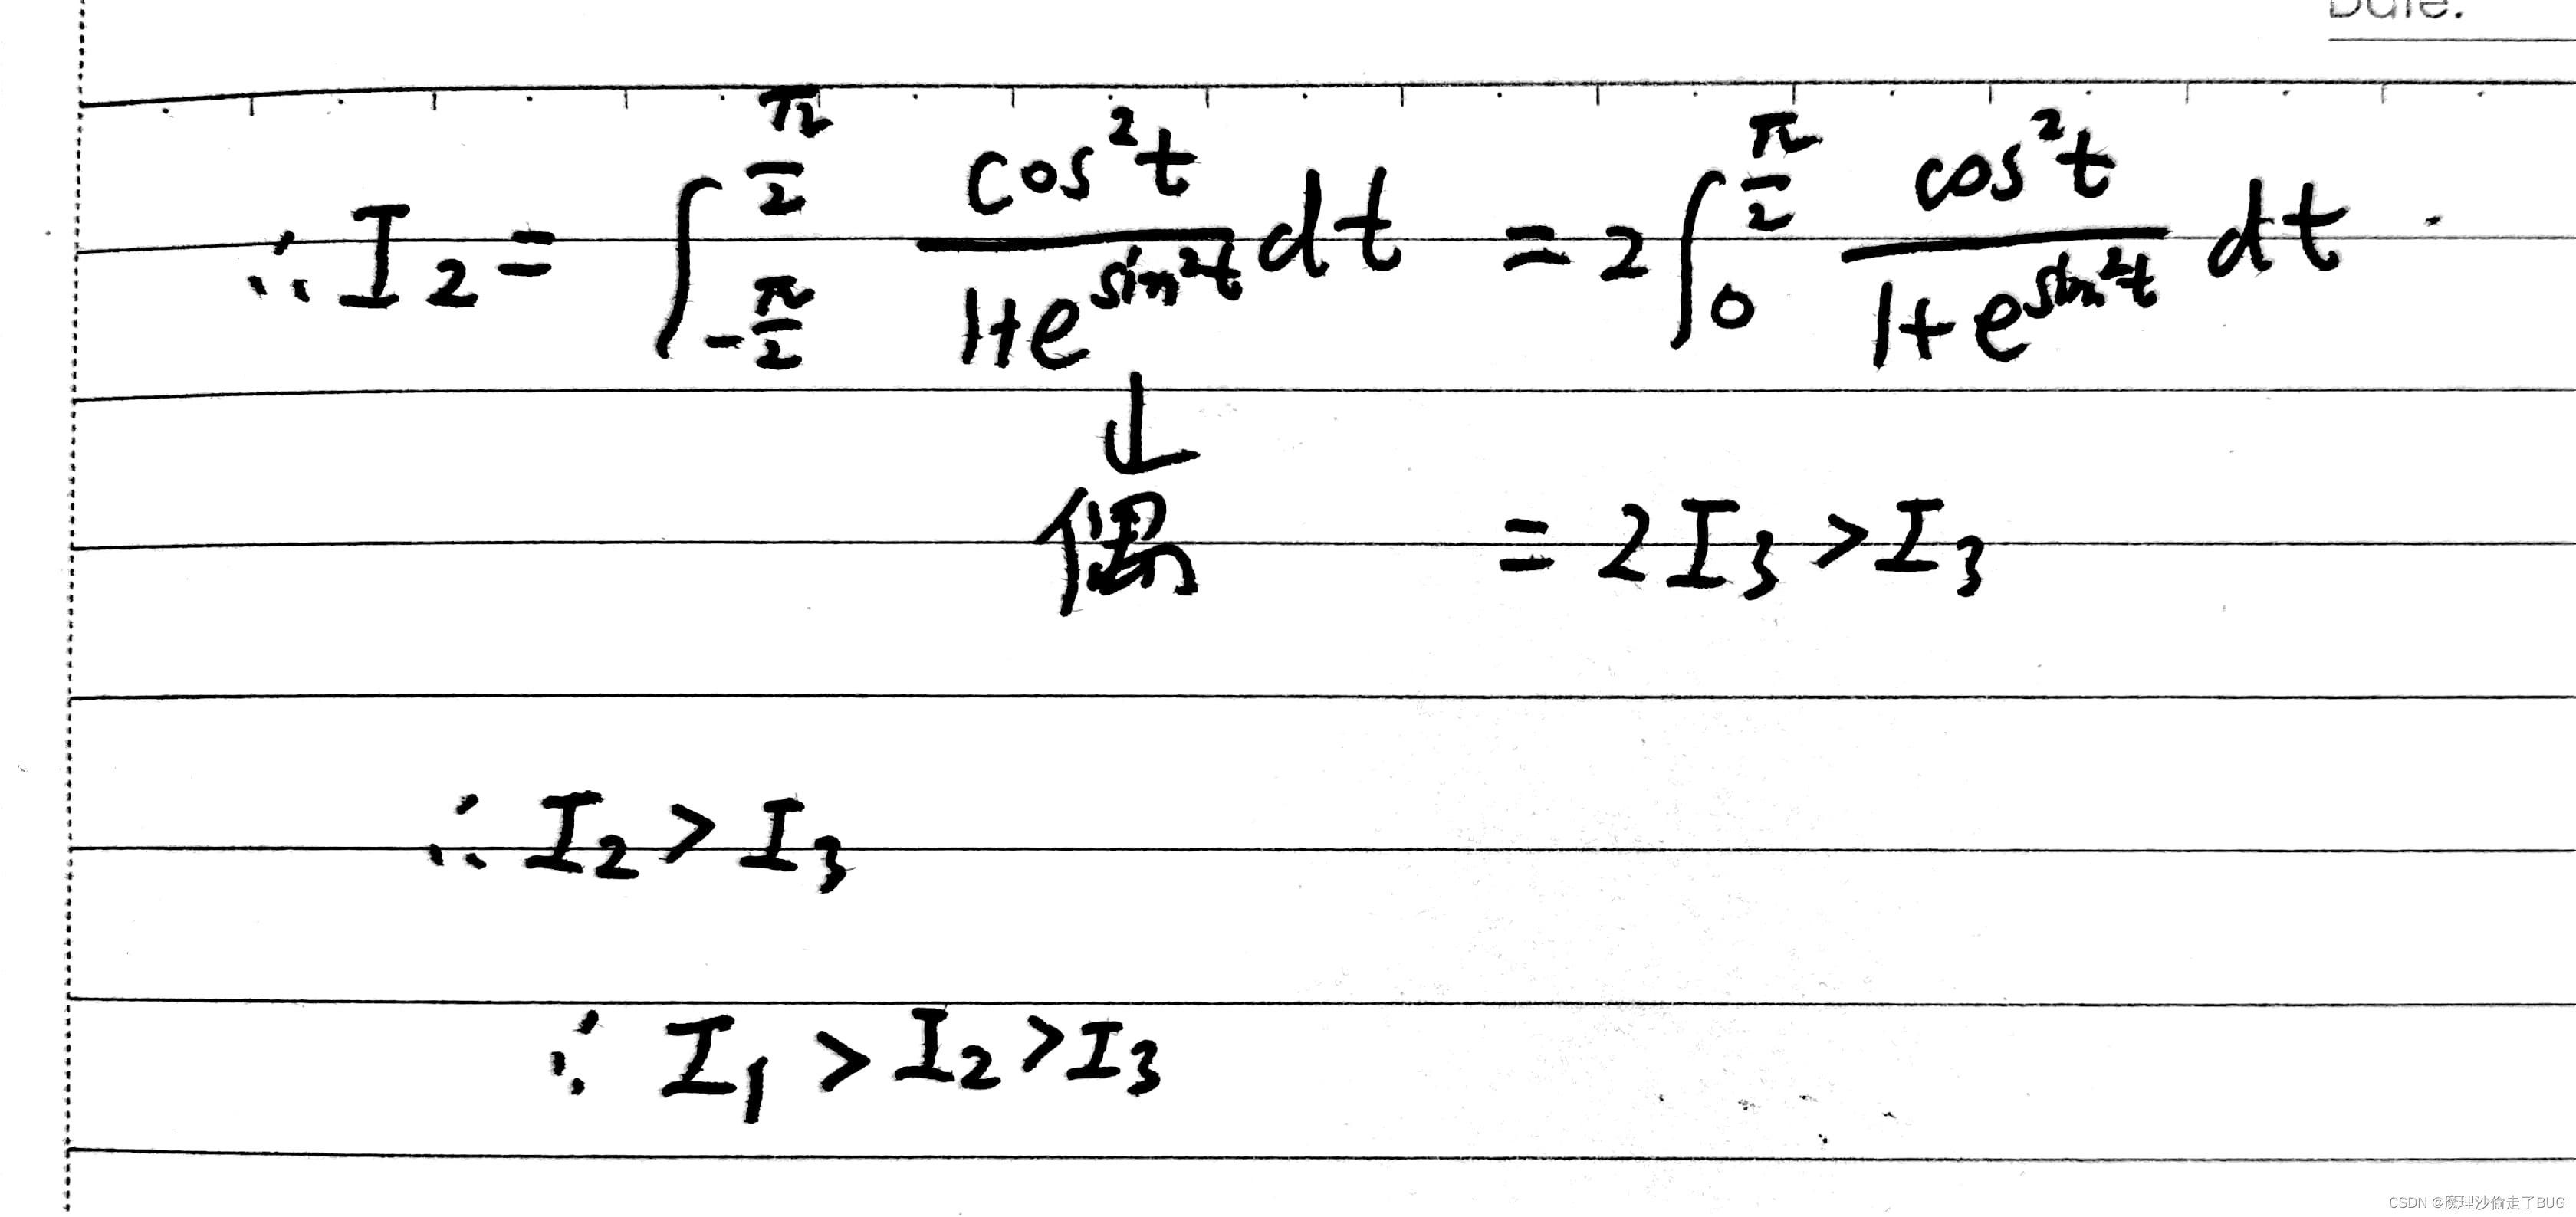 Date:
∴ I₂ = ∫_{-π/2}^{π/2} cos²t / (1+e^{sin²t}) dt = 2∫_0^{π/2} cos²t / (1+e^{sin²t}) dt
↓
偶 = 2I₃ > I₃
∴ I₂ > I₃
∴ I₁ > I₂ > I₃
CSDN @魔理沙偷走了BUG